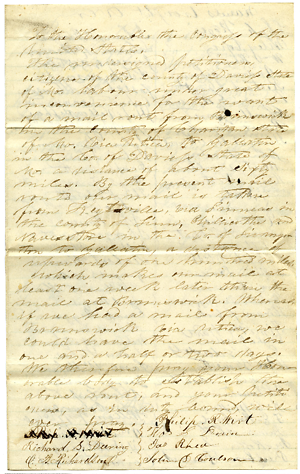 To the Honorable the Congress of the
United States
The undersigned petitioners,
citizens of the county of Daviess State
of Mo. labour under great
inconvenience for the want
of a mail route from Brunswick
in the county of Chariton State
of Mo. via to Gallatin
in the Co. of Daviess State of
Mo. a distance of about fifty
miles. By the present mail
route our mail is taken
from Keytsville, via Linneus in
the county of Linn, Chillicothe and
in the Co. of Livingston
to Gallatin, a distance
upwards of one hundred miles
which makes our mail at
least one week later than the
mail at Brunswick. Whereas
if we had a mail from
Brunswick via we
could have the mail in
one and a half or two days.
We therefore your
body to establish the
above route, and your petitioners
now, as in duty bound, will

Philip R. Hirt
Richard B.
C. B. Richardson John C. Coulson